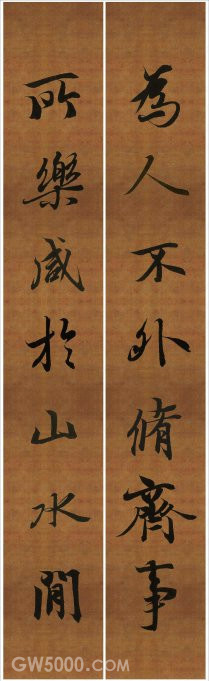 為人不外脩齋事
所樂咸於山水間
GW5000.COM